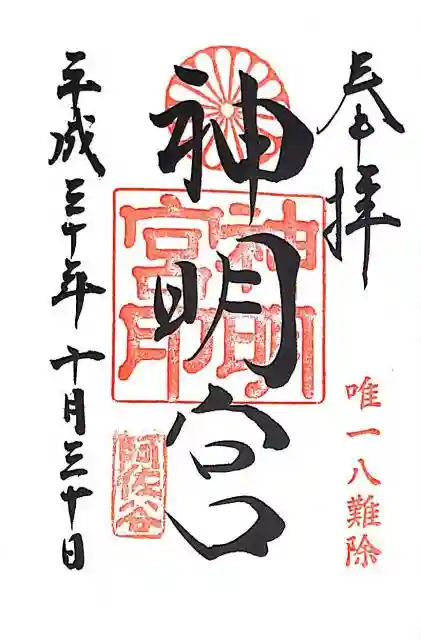 奉拝
唯一八難除
神明宮
神明宮印
阿佐谷
平成三十年十月三十日